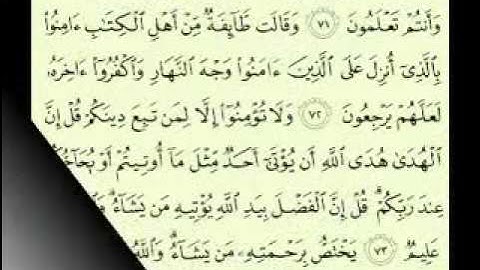 وَأَنتُمْ تَعْلَمُونَ ٧١ وَقَالَت طَّآئِفَةٌ مِّنْ أَهْلِ ٱلْكِتَٰبِ ءَامِنُوا۟
بِٱلَّذِىٓ أُنزِلَ عَلَى ٱلَّذِينَ ءَامَنُوا۟ وَجْهَ ٱلنَّهَارِ وَٱكْفُرُوٓا۟ ءَاخِرَهُۥ
لَعَلَّهُمْ يَرْجِعُونَ ٧٢ وَلَا تُؤْمِنُوٓا۟ إِلَّا لِمَن تَبِعَ دِينَكُمْ قُلْ إِنَّ
ٱلْهُدَىٰ هُدَى ٱللَّهِ أَن يُؤْتَىٰٓ أَحَدٌ مِّثْلَ مَآ أُوتِيتُمْ أَوْ
عِندَ رَبِّكُمْ ۗ قُلْ إِنَّ ٱلْفَضْلَ بِيَدِ ٱللَّهِ يُؤْتِيهِ مَن يَشَآءُ ۗ
عَلِيمٌ ٧٣ يَخْتَصُّ بِرَحْمَتِهِۦ مَن يَشَآءُ ۗ وَٱللَّهُ